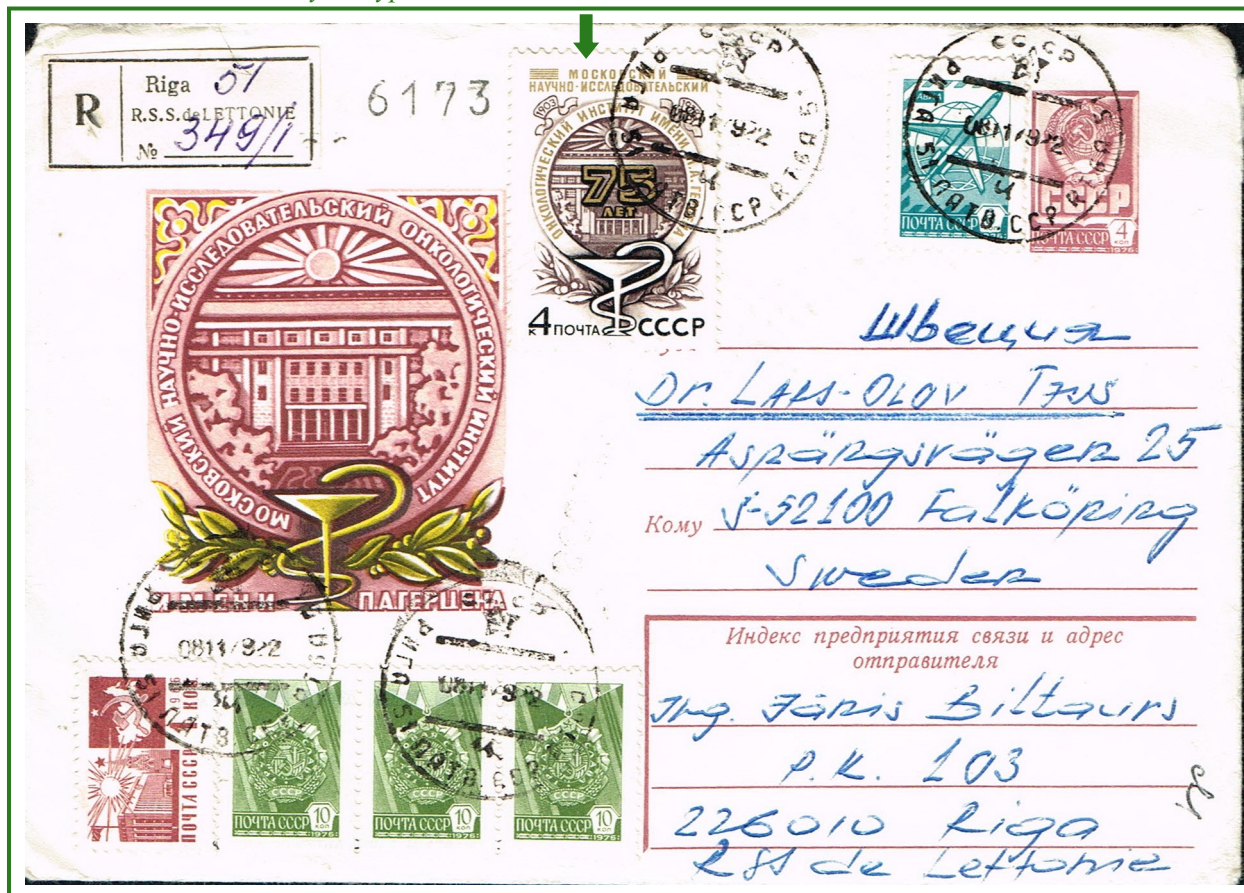 Riga 51
R
R.S.S. de LETTONIE
№ 349/1
6173
МОСКОВСКИЙ
НАУЧНО-ИССЛЕДОВАТЕЛЬСКИЙ
ОНКОЛОГИЧЕСКИЙ ИНСТИТУТ ИМЕНИ
1903
75
ЛЕТ
4 к ПОЧТА СССР
АВИА
ПОЧТА СССР
СССР
ПОЧТА СССР 4 КОП
1976
МОСКОВСКИЙ НАУЧНО-ИССЛЕДОВАТЕЛЬСКИЙ ОНКОЛОГИЧЕСКИЙ ИНСТИТУТ
ИМЕНИ П.А.ГЕРЦЕНА
Швеция
Dr. LARS-OLOV
25
Кому S-52100 Falköping
Sweden
Индекс предприятия связи и адрес
отправителя
Ing. Jānis Biltaurs
P.K. 103
226010 Riga
RSS de Lettonie
ПОЧТА СССР
ПОЧТА СССР 10 КОП
1976
ПОЧТА СССР 10 КОП
1976
ПОЧТА СССР 10 КОП
1976